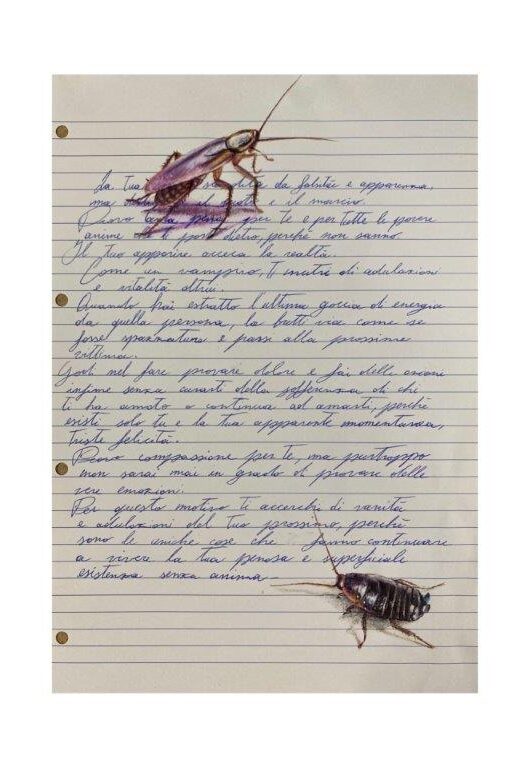 La tua da falsità e apparenza,
ma il e il marcio.
Provo tanta pena per te e per tutte le povere
anime che ti porti dietro, perché non sanno.
Il tuo apparire acceca la realtà.
Come un vampiro, ti nutri di adulazioni
e vitalità altrui.
Quando hai estratto l'ultima goccia di energia
da quella persona, la butti via come se
fosse spazzatura e passi alla prossima
vittima.
Godi nel fare provare dolore e fai delle azioni
infime senza curarti della sofferenza di chi
ti ha amato o continua ad amarti, perché
esisti solo tu e la tua apparente momentanea,
triste felicità.
Provo compassione per te, ma purtroppo
non sarai mai in grado di provare delle
vere emozioni.
Per questo motivo ti accerchi di vanità
e adulazioni del tuo prossimo, perché
sono le uniche cose che fanno continuare
a vivere la tua penosa e superficiale
esistenza senza anima